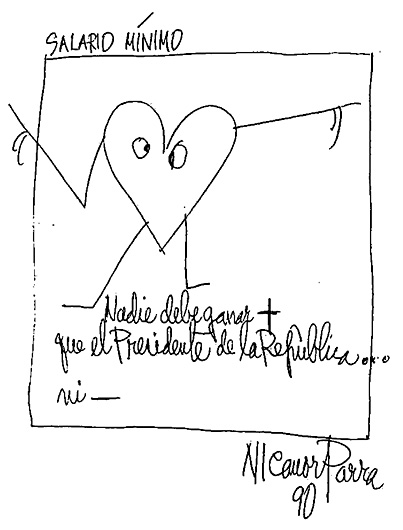 SALARIO MÍNIMO
Nadie debe ganar +
que el Presidente de la República...
ni —
NICanor Parra
90